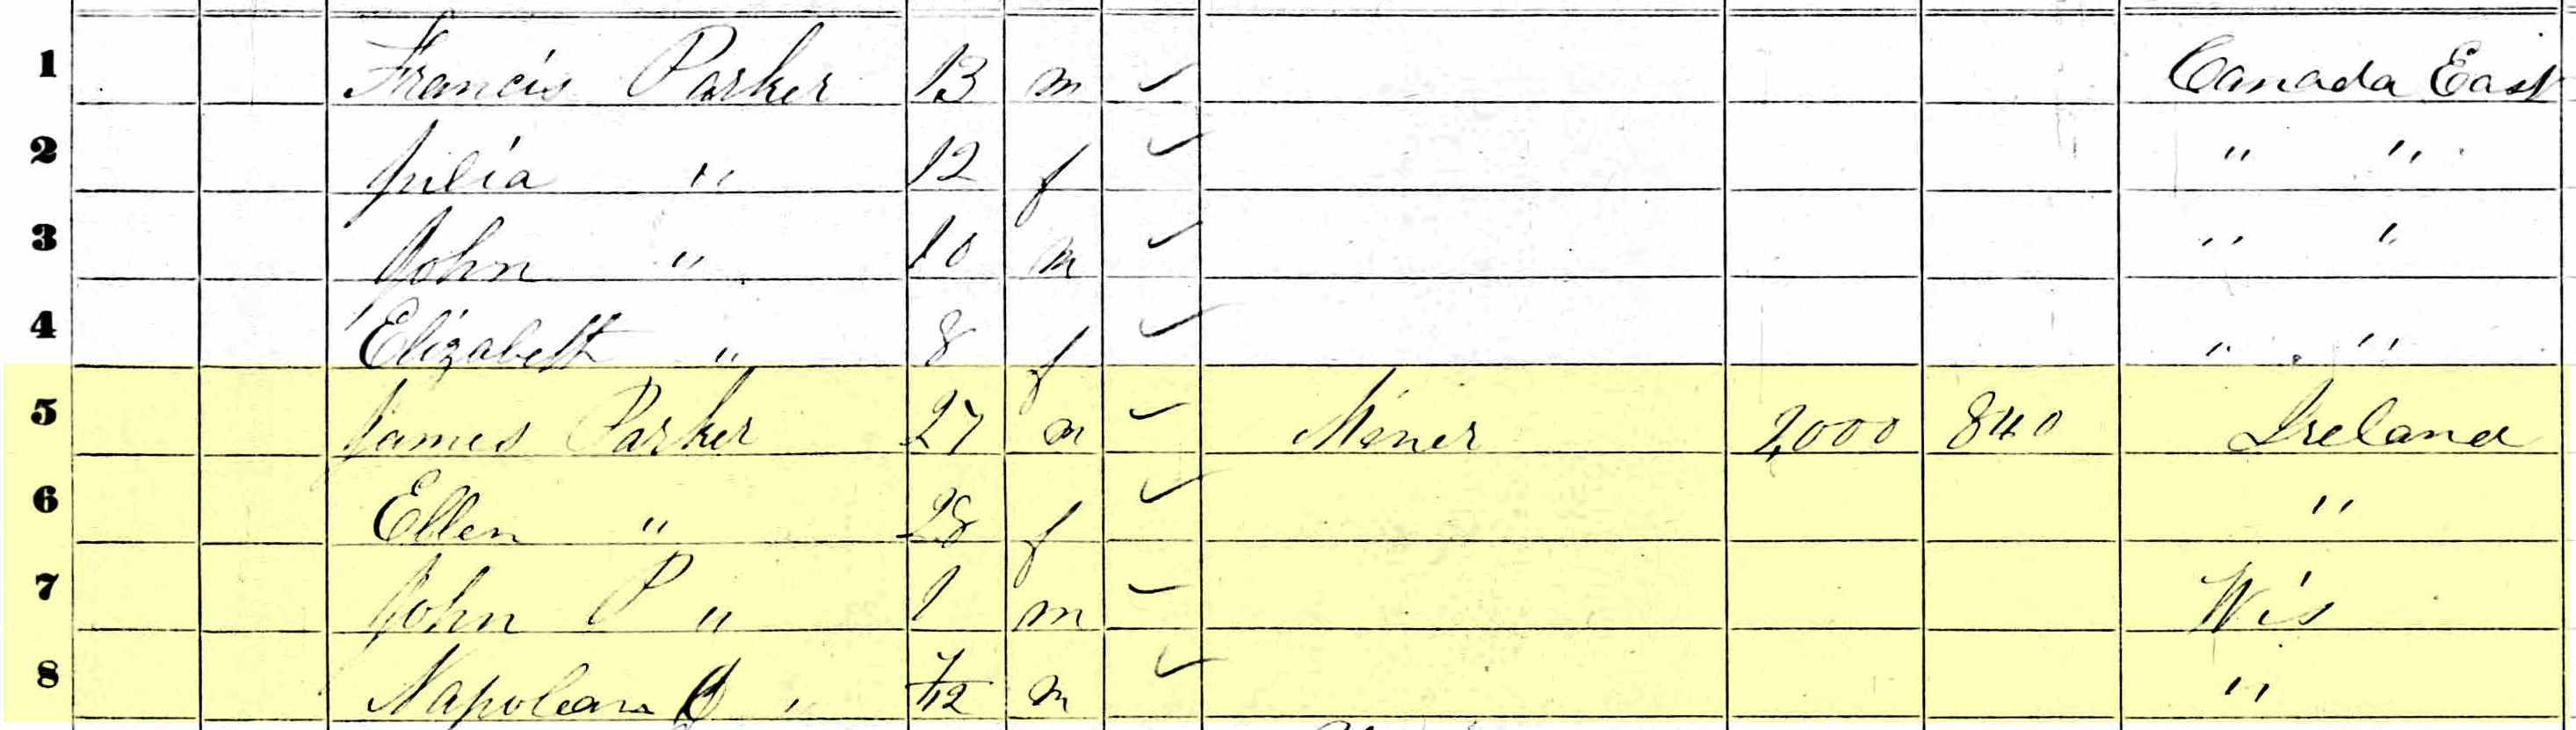 1 Francis Parker 13 m ✓ Canada East
2 Julia " 12 f ✓ " "
3 John " 10 m ✓ " "
4 Elizabeth " 8 f ✓ " "
5 James Parker 27 m ✓ Miner 2,000 840 Ireland
6 Ellen " 28 f ✓ "
7 John P " 1 m ✓ Wis
8 Napolean " 7/12 m ✓ "